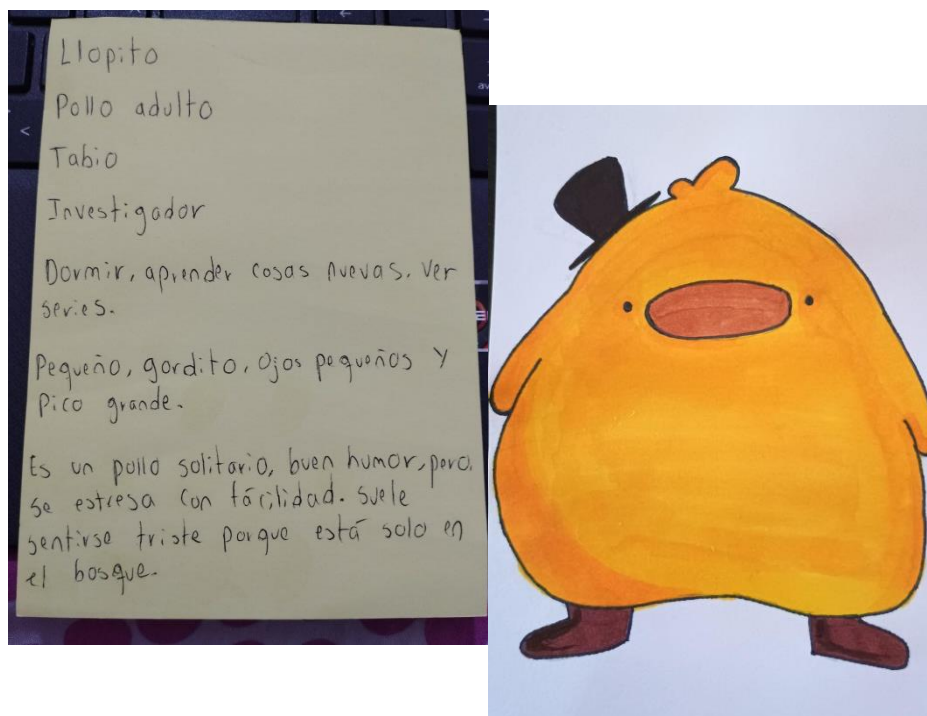 Llopito
Pollo adulto
Tabio
Investigador
Dormir, aprender cosas nuevas. Ver
series.
Pequeño, gordito, ojos pequeños y
pico grande.
Es un pollo solitario, buen humor, pero,
se estresa con fácilidad. suele
sentirse triste porque está solo en
el bosque.